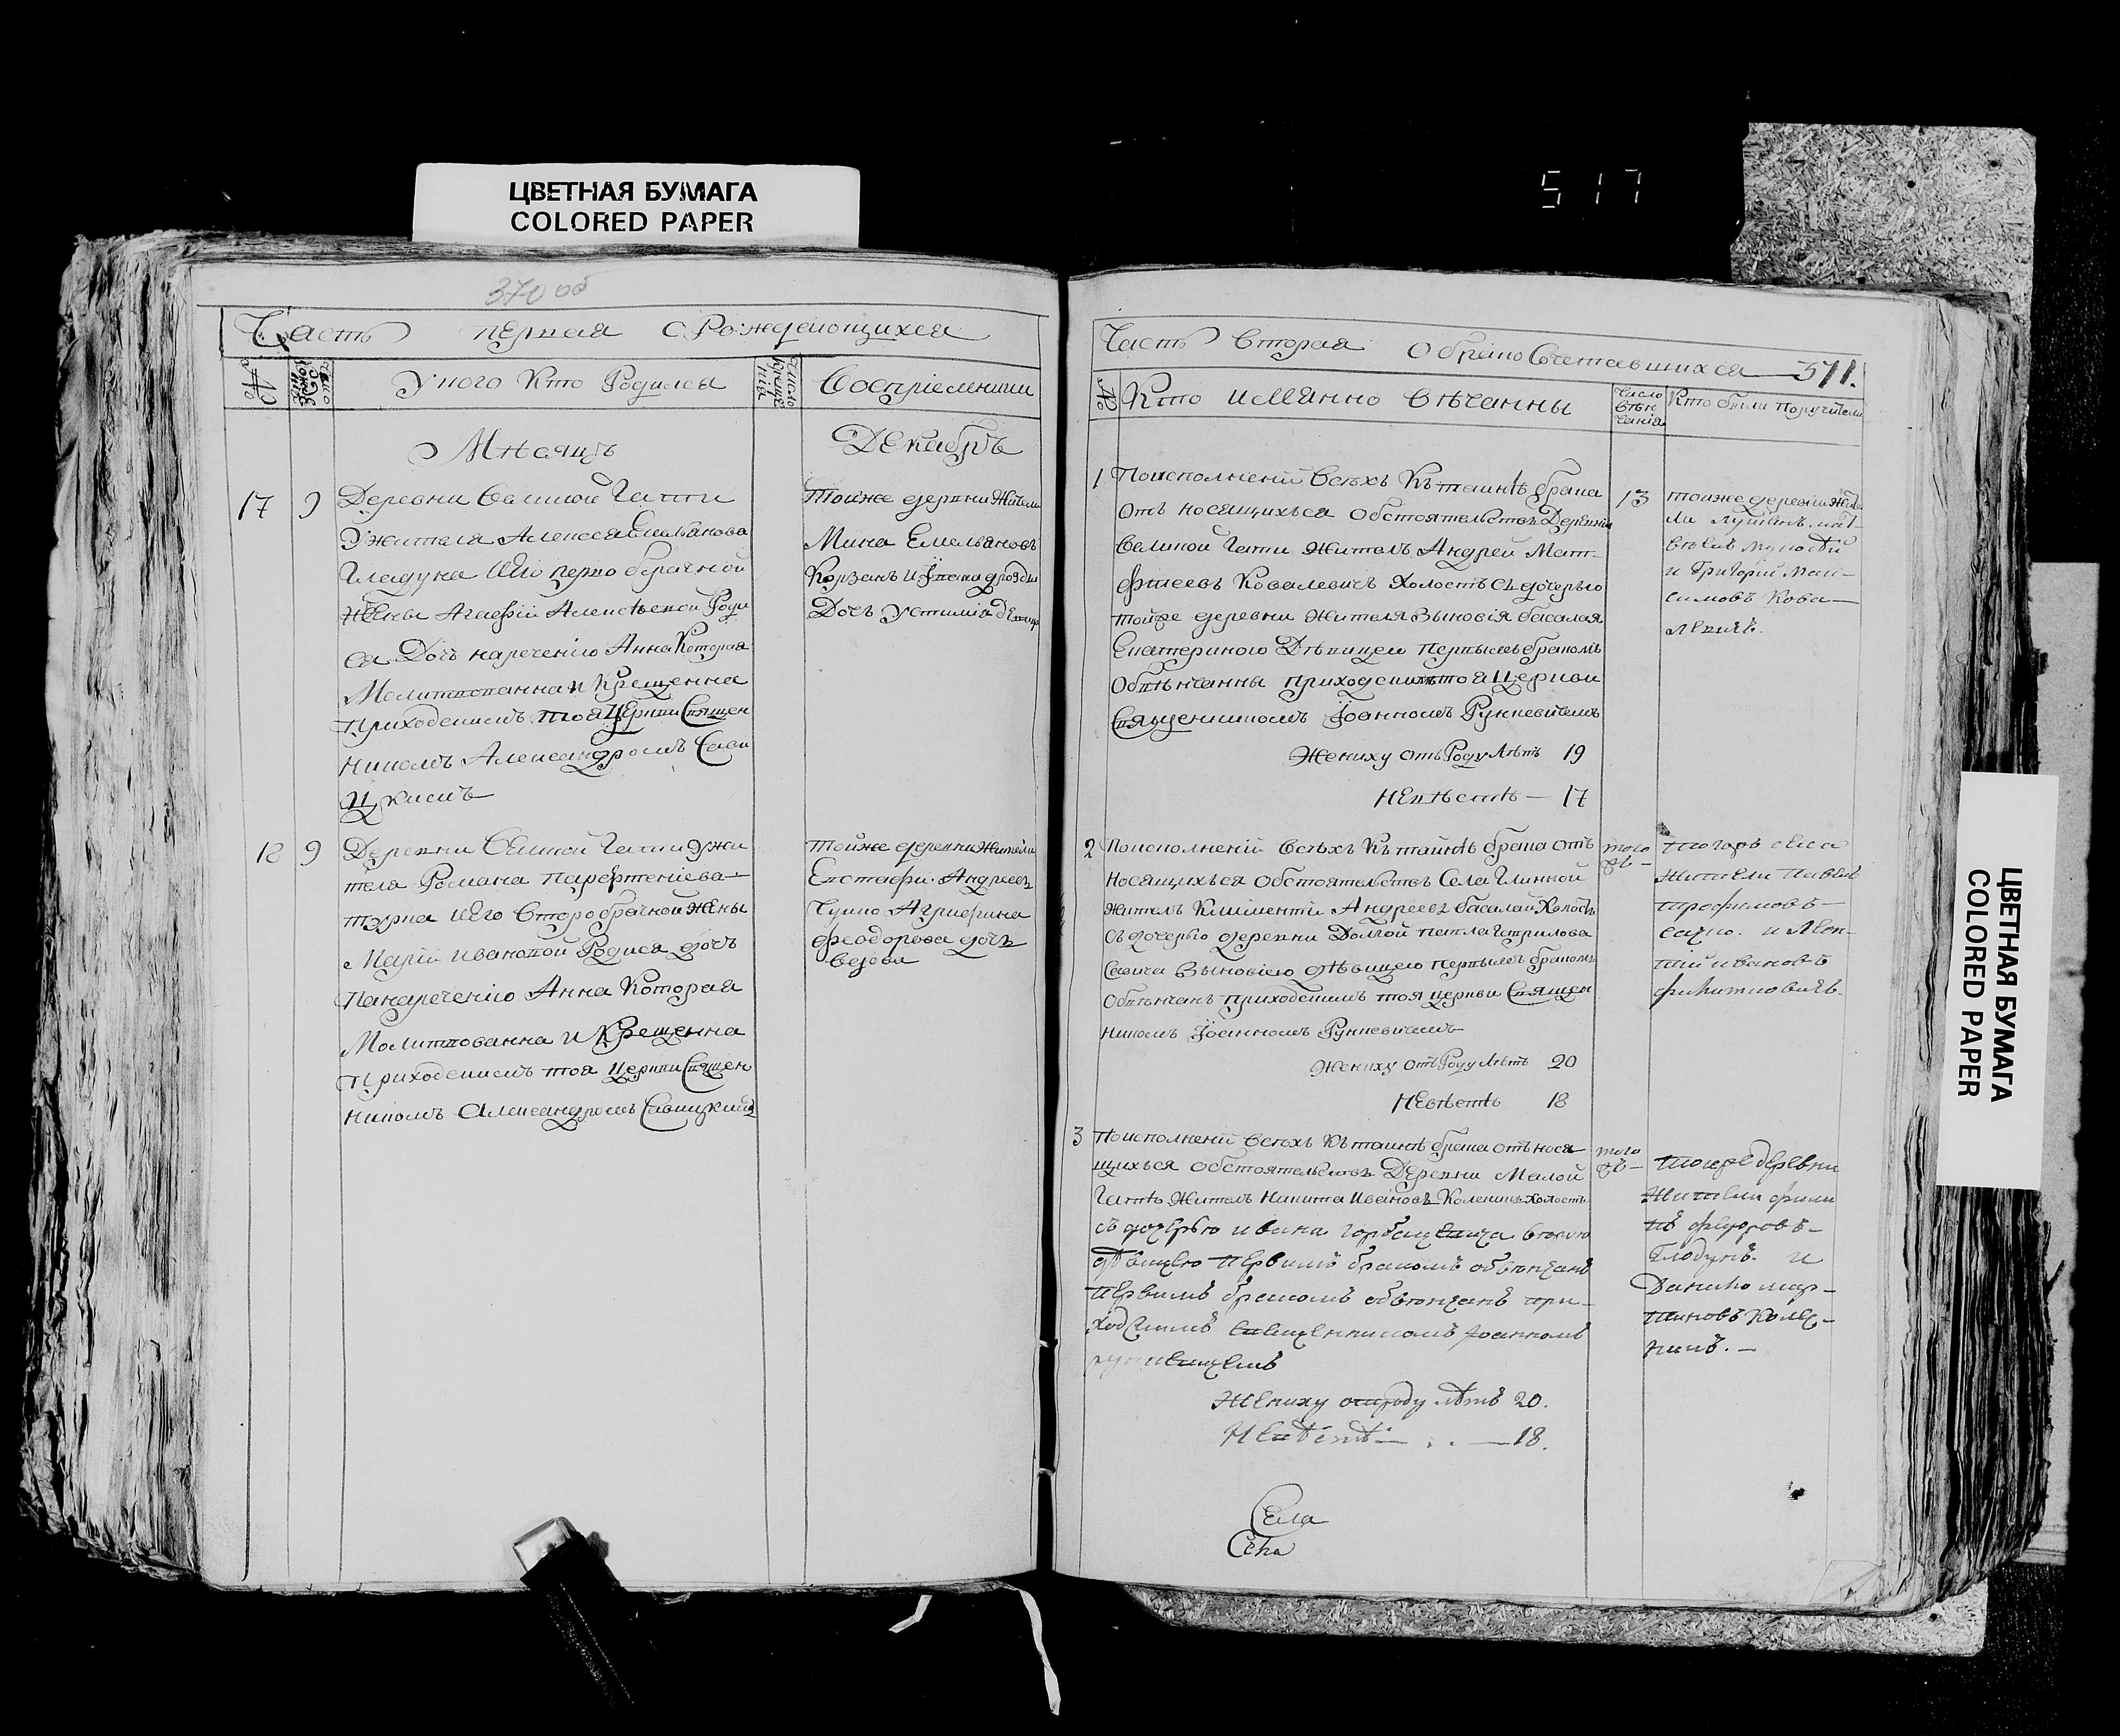 ЦВЕТНАЯ БУМАГА
COLORED PAPER
517
370 об
Часть первая о Рождающихся
№
У кого Кто Родился
Восприемники
Мѣсяцъ
Декабрь
17 9 Деревни Великой Гатти
У жителя Алексея Емельянова
Гладуна и его перво брачной
жены Агафіи Алексѣевой Роди
ся Дочь наречению Анна Которая
Молитвованна и Крещенна
приходскимъ тоя Церкви Священ
никомъ Александромъ Сави
цкимъ
Тойже деревни Жители
Мина Емельяновъ
Корзанъ и
Дочь Устимія
18 9 Деревни Великой Гатти У жи
теля Романа Парфтеніева
и его второбрачной жены
Марїи Ивановой Родися дочь
Понаречению Анна Которая
Молитвованна и Крещенна
приходскимъ тоя Церкви Священ
никомъ Александромъ Савицкимъ
Тойже деревни Жители
Евстафи Андреевъ
Агрифина
феодорова дочь
Часть вторая О бракосочетавшихся 371.
№ Кто имянно вѣнчанны
Число вѣнчанія
Кто были поручители
1 Поисполненїи Всѣхъ Къ таинѣ брака
отъ носящихъся обстоятельствъ Деревни
Великой Гатти житель Андрей Мат-
фтеевъ Ковалевичъ Холостъ съ дочерью
тойже деревни жителя Зыновія басалая
Екатериною Дѣвицею первымъ бракомъ
Обвѣнчанны приходскимъ тоя Церкви
Священникомъ Іоанномъ Рункевичемъ
Жениху отъ Роду лѣтъ 19
Невѣстѣ — 17
13
тойже деревни жите
ли
и Григорій Мак-
симовъ Кова-
левичъ.
2 Поисполненїи Всѣхъ Къ таинѣ брака отъ
носящихъся обстоятельствъ Села Глинной
житель Климентїи Андреевъ басалай Холостъ
съ дочерью деревни Долгой Павла Гаврилова
Савича Зыновіею дѣвицею первымъ бракомъ
Обвѣнчанъ приходскимъ тоя церкви Священ
никомъ Іоанномъ Рункевичемъ
Жениху отъ Роду Лѣтъ 20
Невѣстѣ 18
того
жъ —
тогожъ села
жители Павелъ
трофимовъ —
и Леон-
тій ивановъ
3 Поисполненїи Всѣхъ Къ таинѣ брака отъ нося-
щихъся обстоятельствъ Деревни Малой
Гаттѣ житель Никита Ивановъ Холостъ
съ дочерью ивана
дѣвицею первимъ бракомъ обвѣнчанъ
первимъ бракомъ обвѣнчанъ при-
ходскимъ священникомъ Іоанномъ
рункевичемъ
Жениху отроду лѣтъ 20.
Невѣстѣ — . . — 18.
того
жъ —
тоюже деревни
жители фили
пъ федоровъ —
Гладунъ. и
Данило мар-
тиновъ
Села
ЦВЕТНАЯ БУМАГА
COLORED PAPER